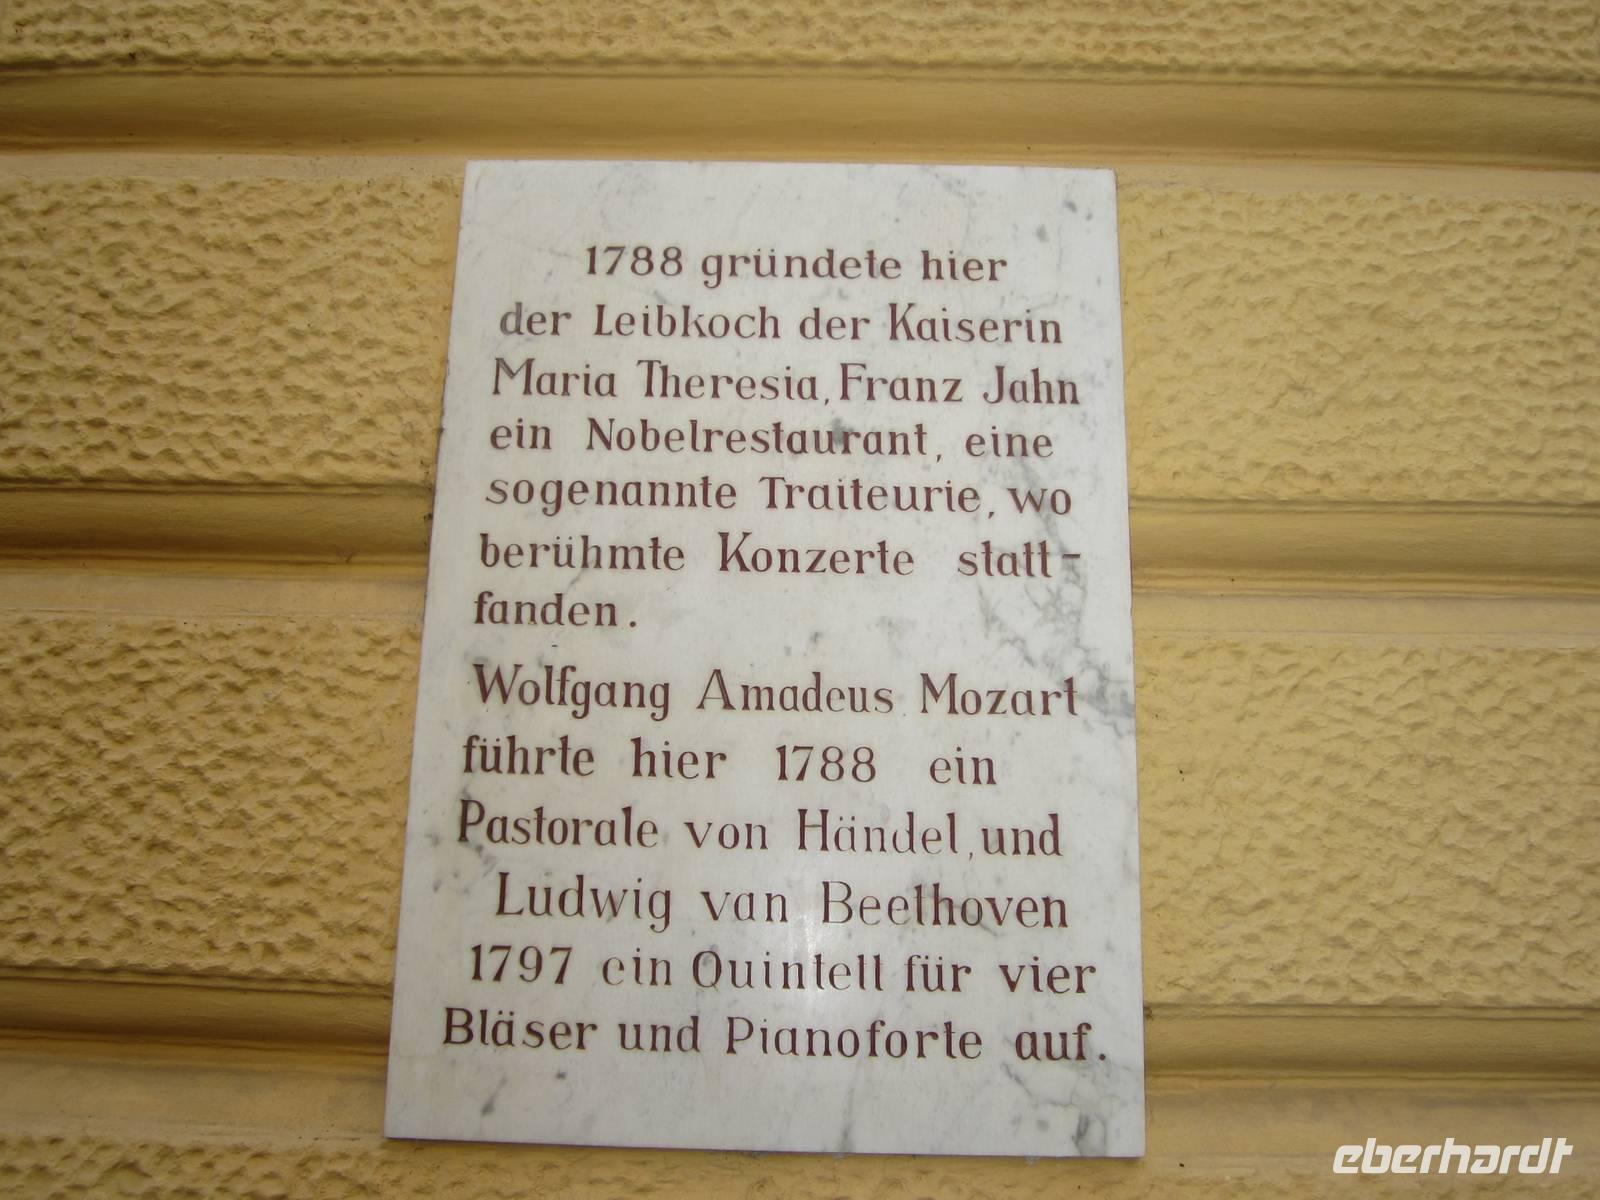 1788 gründete hier
der Leibkoch der Kaiserin
Maria Theresia, Franz Jahn
ein Nobelrestaurant, eine
sogenannte Traiteurie, wo
berühmte Konzerte statt-
fanden.
Wolfgang Amadeus Mozart
führte hier 1788 ein
Pastorale von Händel, und
Ludwig van Beethoven
1797 ein Quintett für vier
Bläser und Pianoforte auf.
eberhardt